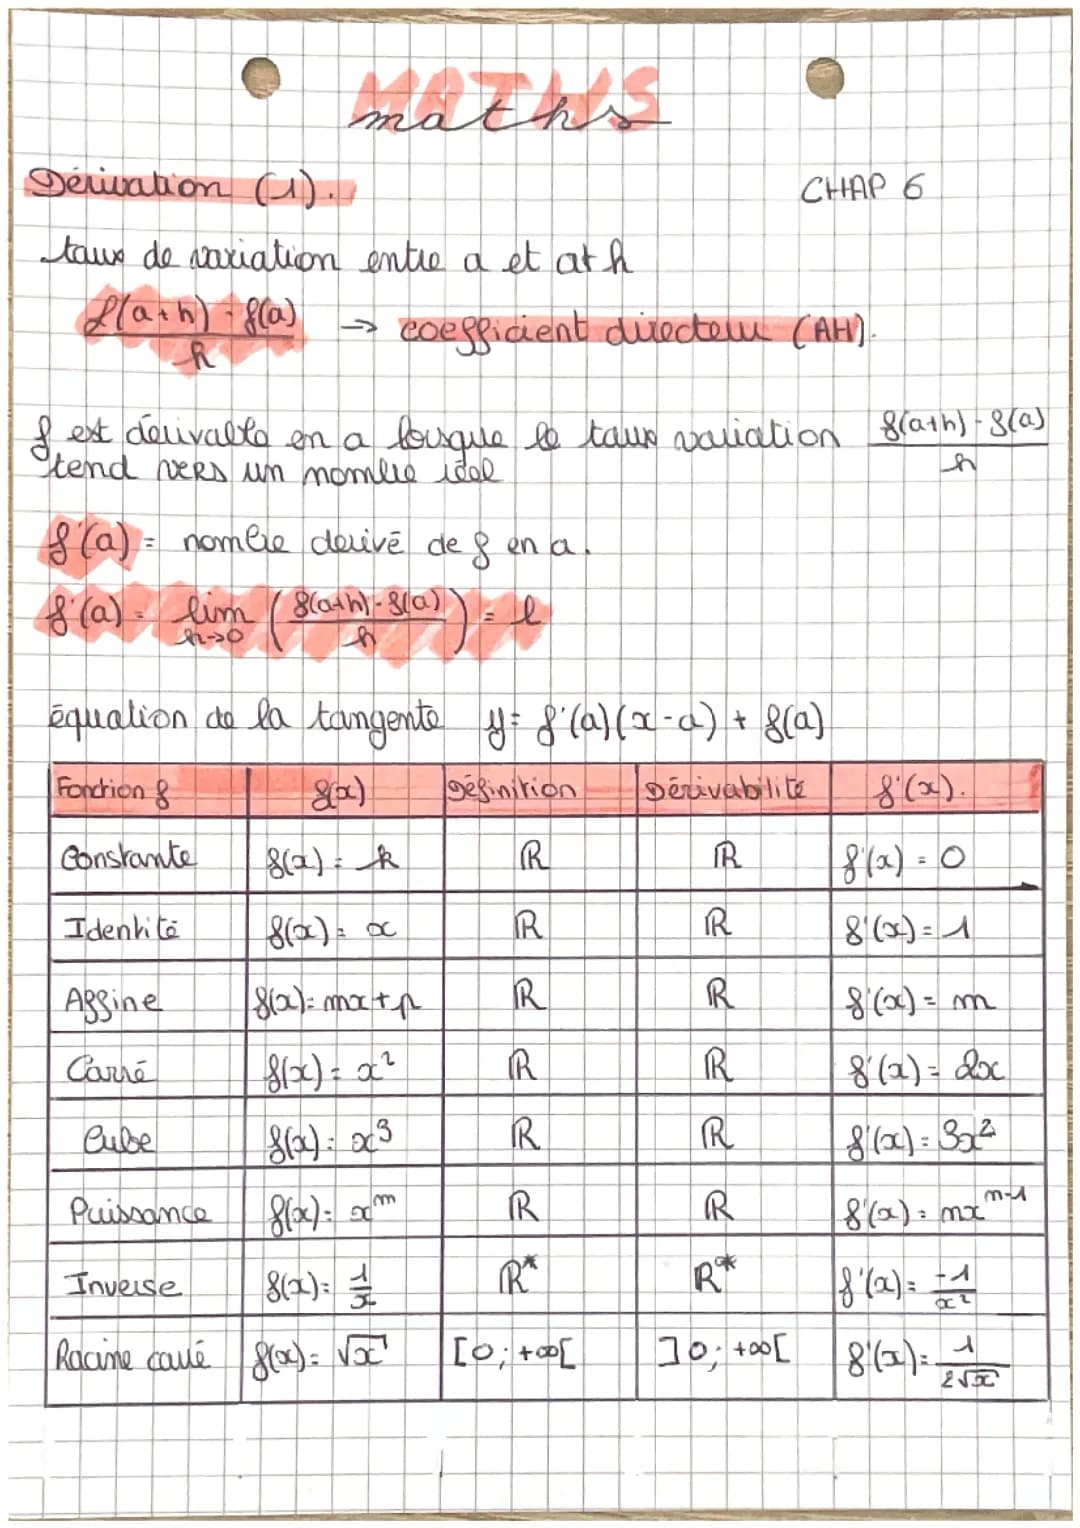 MATHS
maths
Dérivation (1).
CHAP 6
taux de variation entre a et a+h
f(a+h)-f(a)/h → coefficient directeur (AH).
f est dérivable en a lorsque le taux variation f(a+h)-f(a)/h
tend vers un nombre réel
f'(a) = nombre derivé de f en a.
f'(a) = lim h→0 (f(a+h)-f(a)/h) = l
équation de la tangente y= f'(a)(x-a) + f(a)
Fonction f f(x) Définition Dérivabilité f'(x).
Constante f(x) = k ℝ ℝ f'(x) = 0
Identité f(x) = x ℝ ℝ f'(x) = 1
Affine f(x) = mx+p ℝ ℝ f'(x) = m
Carré f(x) = x² ℝ ℝ f'(x) = 2x
Cube f(x) = x³ ℝ ℝ f'(x) = 3x²
Puissance f(x) = xⁿ ℝ ℝ f'(x) = nxⁿ⁻¹
Inverse f(x) = 1/x ℝ* ℝ* f'(x) = -1/x²
Racine carré f(x) = √x [0; +∞[ ]0; +∞[ f'(x) = 1/2√x